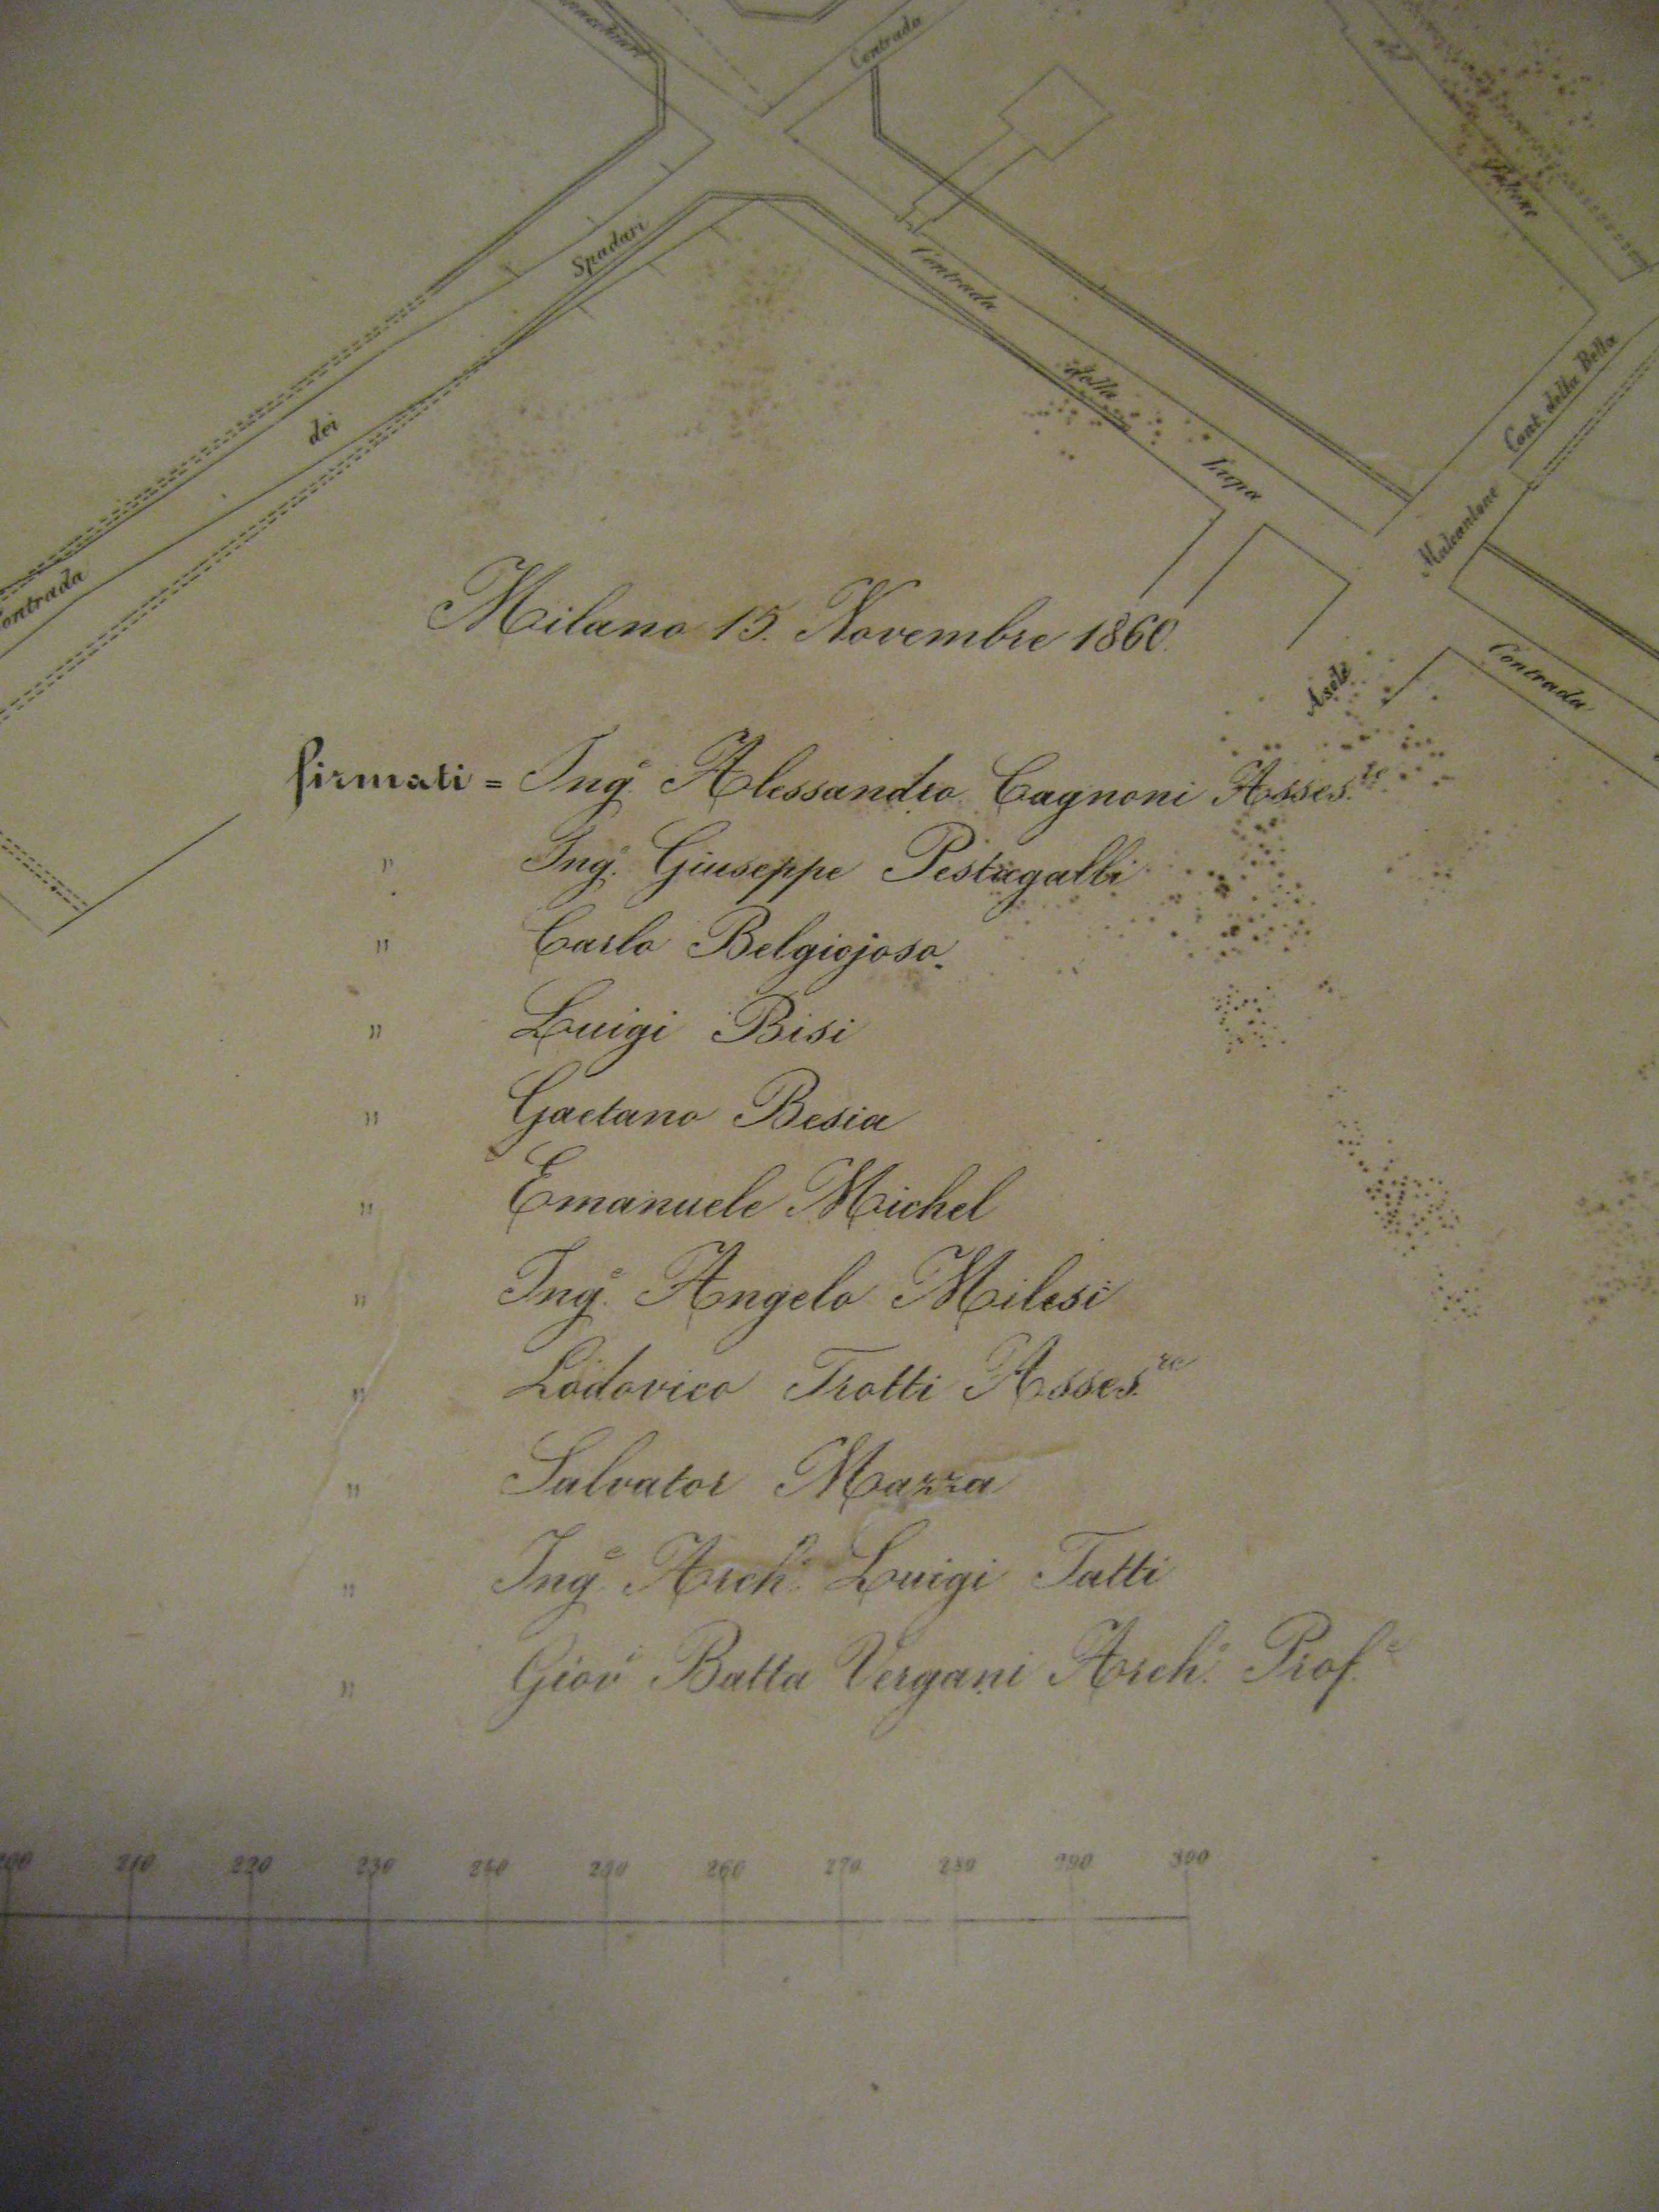 Contrada
Spadari
dei
Contrada
della
Lupa
Cont. della Bella
Malcantone
Contrada
Asole
Milano 15. Novembre 1860.
firmati = Ing.e Alessandro Cagnoni Asses.re
" Ing.e Giuseppe Pestagalli
" Carlo Belgiojoso.
" Luigi Bisi
" Gaetano Besia
" Emanuele Michel
" Ing.e Angelo Milesi
" Lodovico Trotti Asses.re
" Salvator Mazza
" Ing.e Arch.o Luigi Tatti
" Giov. Batta Vergani Arch.o Prof.e
210 220 230 240 250 260 270 280 290 300